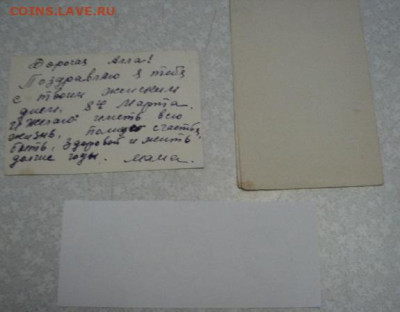 COINS.LAVE.RU
Дорогая Алла!
Поздравляю я тебя
с твоим женским
днем, 8е Марта.
и желаю иметь всю
жизнь, полную счастья,
быть здоровой и жить
долгие годы. мама.